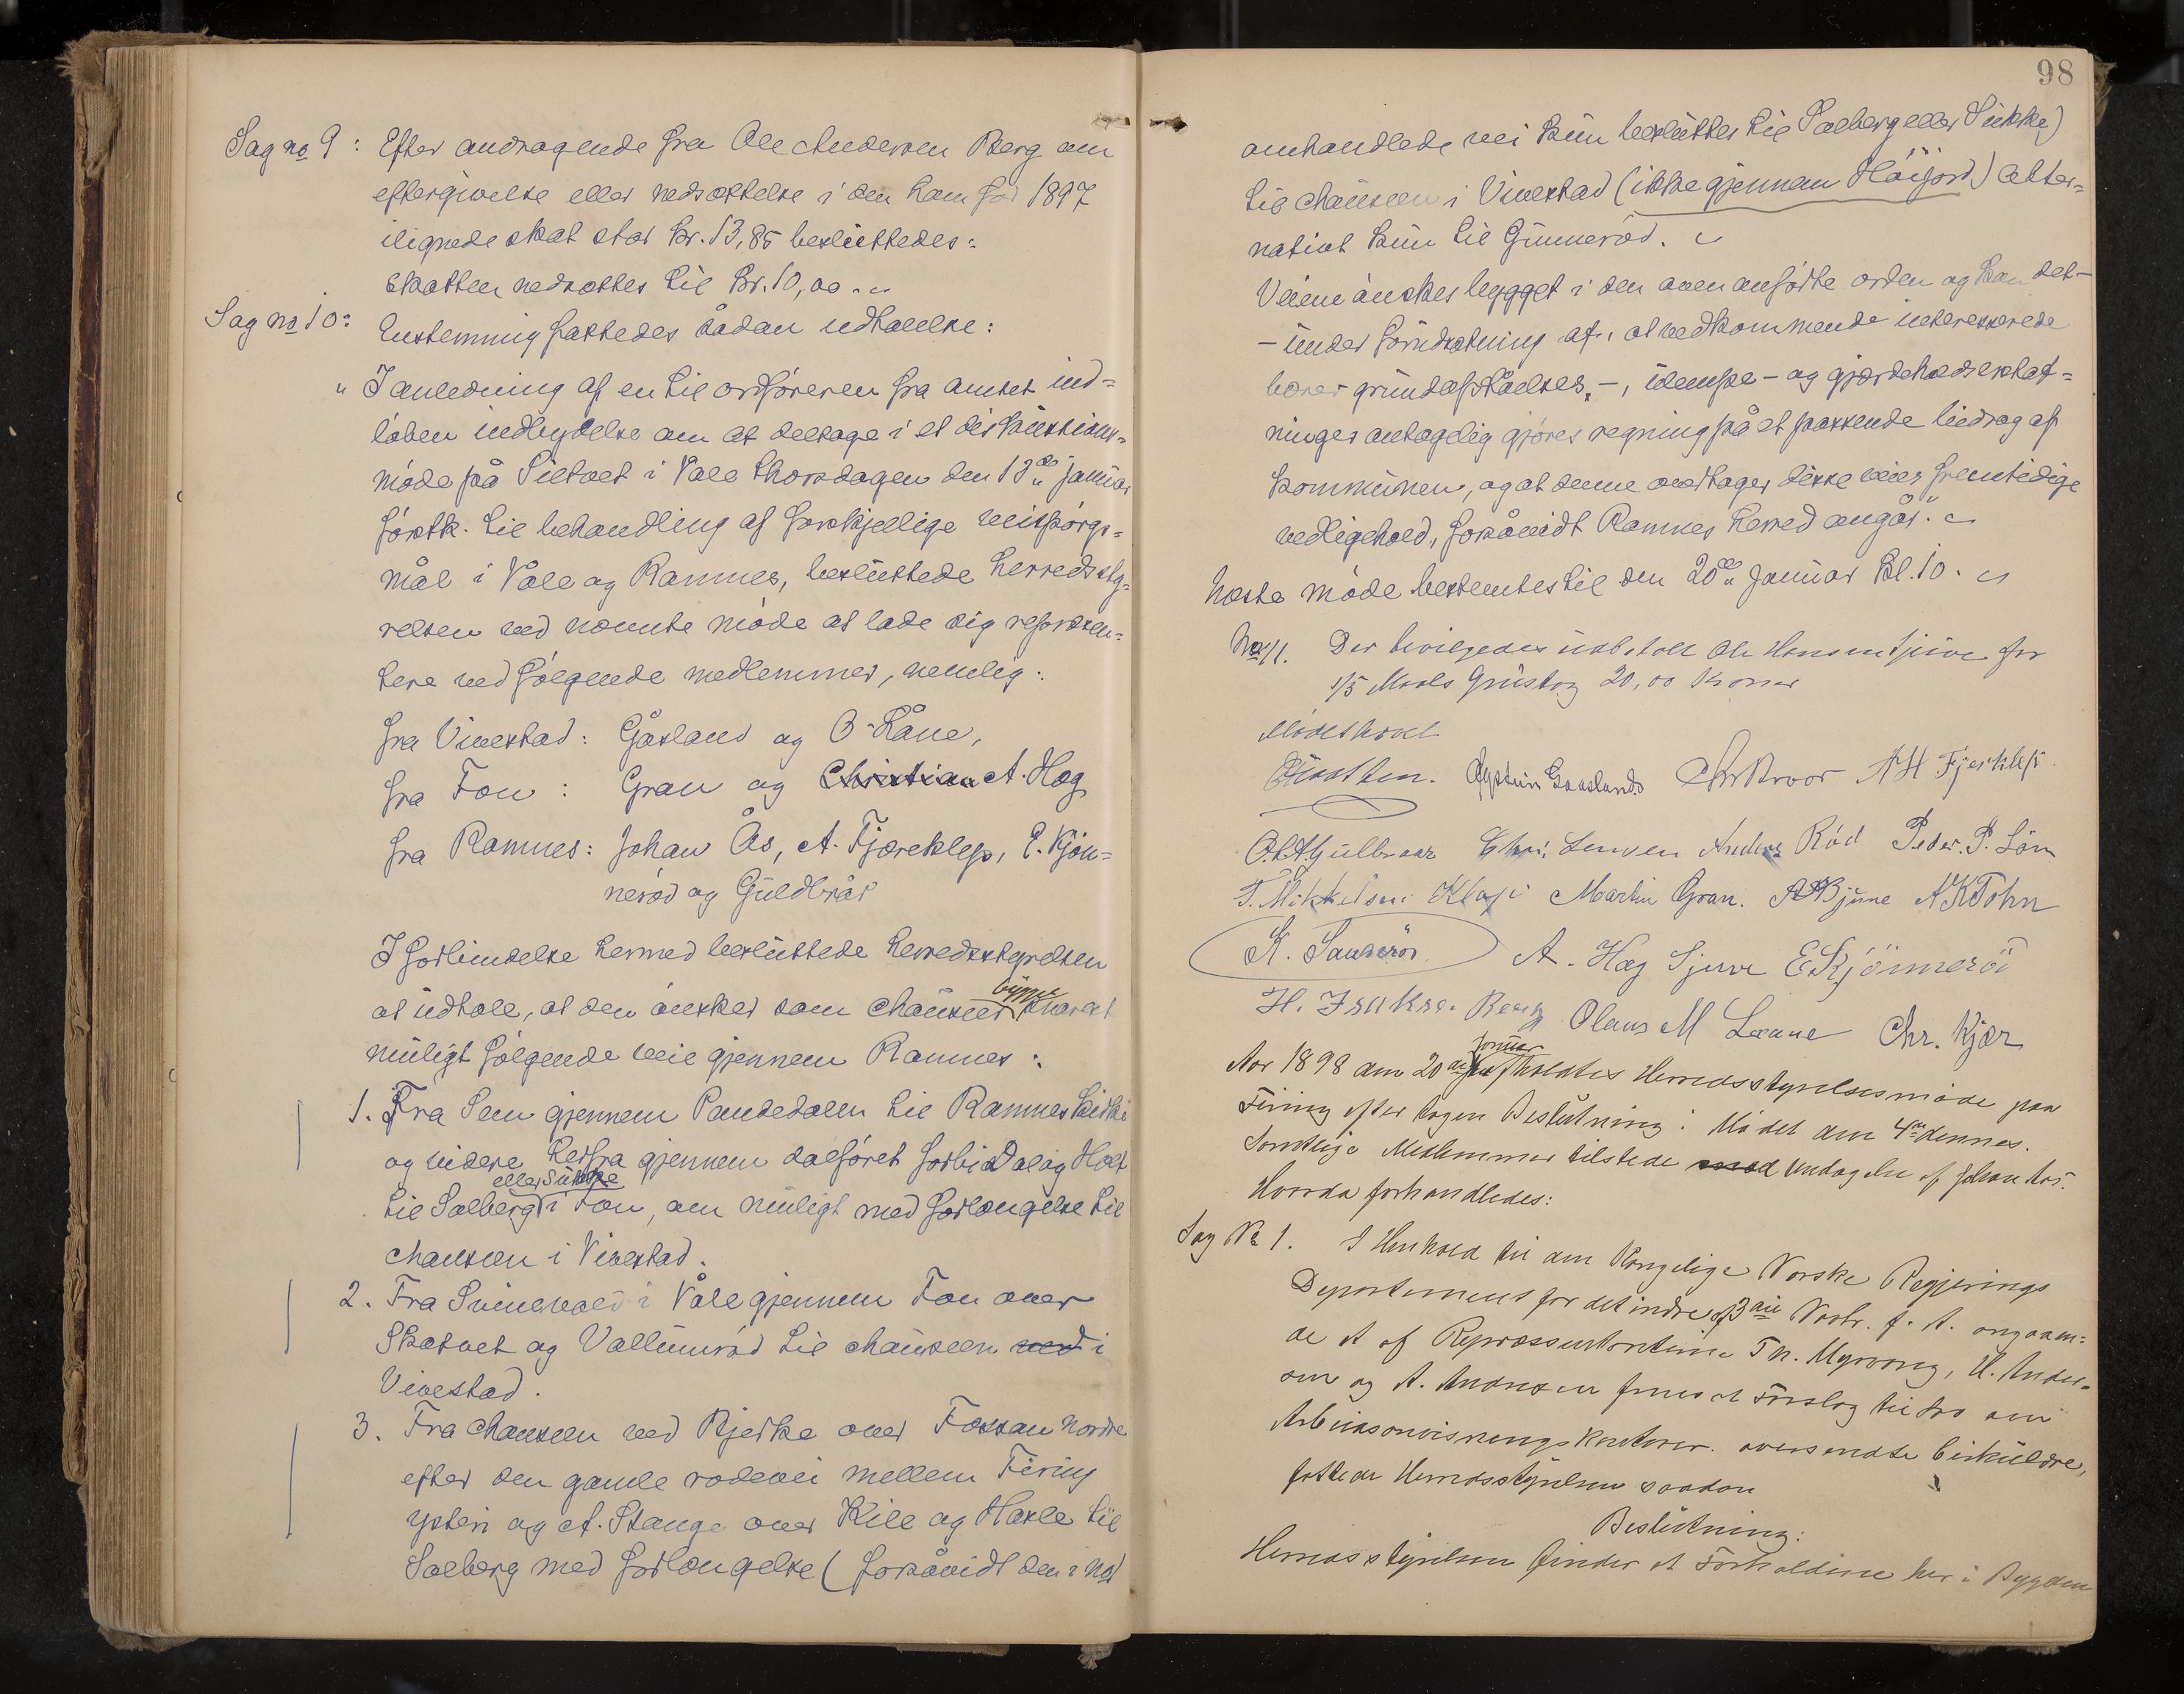 Sag no 9: Efter andragende fra Ole Andersen Berg om
eftergivelse eller nedsættelse i den ham for 1897
ilignede skat stor kr. 13,85 besluttedes:
Skatten nedsættes til kr. 10,00.
Sag no 10: Enstemmig fattedes sådan udtalelse:
"I anledning af en til ordføreren fra amtet ind=
løben indbydelse om at deltage i et diskussions=
møde på Siltvet i Våle thorsdagen den 13de januar
førstk. til behandling af forskjellige veispørgs=
mål i Våle og Ramnes, besluttede herredssty=
relsen ved nævnte møde at lade sig repræsen=
tere ved følgende medlemmer, nemlig:
fra Vivestad: Gåsland og O. Låne,
fra Fon: Gran og Christian A. Hæg
fra Ramnes: Johan Ås, A. Fjæreklep, E. Kjøn=
nerød og Guldbrår
I forbindelse hermed besluttede herredsstyrelsen
at udtale, at den ønsker som chauseer bygget snarest
muligt følgende veie gjennem Ramnes:
1. Fra Sem gjennem Pandedalen til Ramnes kirke
og videre herfra gjennem dalføret forbi Dal og Holt
eller Sukke
til Solberg i Fon, om muligt med forlængelse til
chauseen i Vivestad.
2. Fra Svinevold i Våle gjennem Fon over
Skatvet og Vallumrød til chauseen ved i
Vivestad.
3. Fra chauseen ved Bjerke over Fossan nordre
efter den gamle rodevei mellem Firing
ysteri og A. Stange over Kile og Hasle til
Solberg med forlængelse (forsåvidt den i no 1
98
omhandlede vei kun besluttes til Solberg eller Sukke)
til chauseen i Vivestad (ikke gjennem Høijord) alter=
nativt kun til Gunnerød.
Veiene ønskes bygget i den oven anførte orden og kan det
- under forudsætning af, at vedkommende interesserede
bærer grundafståelses-, ulempe- og gjærdeholdserstat=
ninger antagelig gjøres regning på et passende bidrag af
kommunen, og at denne overtager disse veies fremtidige
vedligehold, forsåvidt Ramnes herred angår."
Næste møde bestemtes til den 20de januar kl. 10.
No 11. Der bevilgedes udbetalt Ole Hansen Sjuve for
1/5 Maals Grustag 20,00 Kroner
Mødet hævet
Øystein Gaasland. Chr Kroor A H Fjerklep.
O. A. Gulbraar Chr. Linnen Anders Rød Peder. P. Løn
T. Mikkelsen Klopp Martin Gran. A A Bjune A K Tohn
K. Sanderød A. Hæg Sjuve E Kjönneröd
H. Isakse. Berg Olaus M Laane Chr. Kjær
Aar 1898 den 20de januar afholdtes Herredsstyrelsesmøde paa
Firing efter tagen Beslutning i Mødet den 4de dennes.
Samtlige Medlemmer tilstede med Undtagelse af Johan Aas.
Hvorda forhandledes:
Sag No 1. I Henhold til den Kongelige Norske Regjerings
Departement for det indres 3die Kontr. f. A. angaaen=
de et af Repræsentanterne Th. Myrvang, U. Ander=
sen og A. Andersen fremsat Forslag til Lov om
Arbeidsanvisningskontorer. oversendte Cirkulære,
fattede Herredsstyrelsen saadan
Beslutning:
Herredsstyrelsen finder at Forholdene her i Bygden